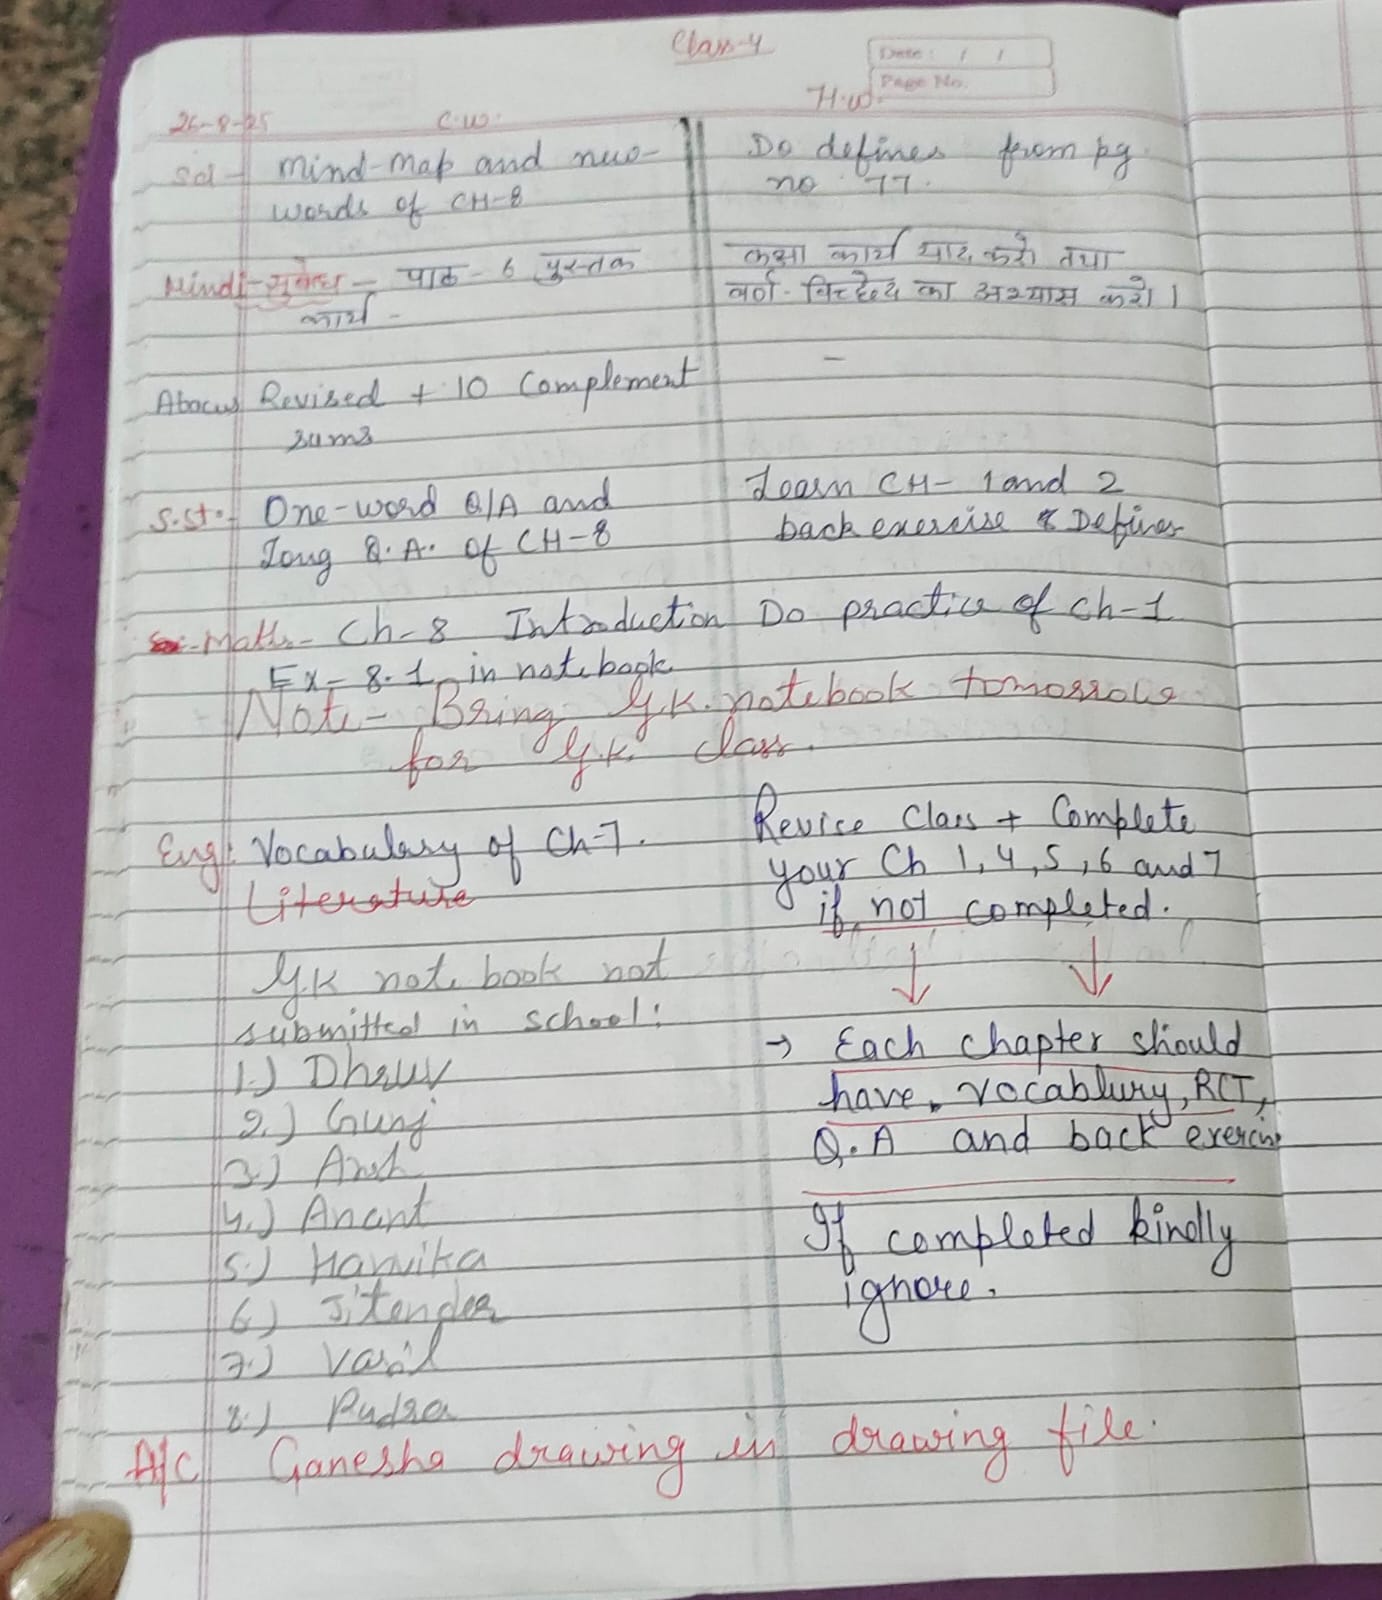 Class-4
Date: / /
Page No.
H.W.
26-8-25 C.W.
Sci - Mind-Map and nuo-
words of CH-8
Do defines from pg
no 77.
Hindi - सुलेख - पाठ - 6 पुस्तक
कार्य -
कक्षा कार्य याद करो तथा
वर्ण-विच्छेद का अभ्यास करो।
Abacus Revised + 10 Complement
sums
-
S.st. - One-word Q/A and
Long Q.A. of CH-8
Learn CH- 1 and 2
back exercise & Defines
Math - Ch-8 Introduction
Ex- 8.1 in notebook
Do practice of Ch-1
Note - Bring G.K. notebook tomorrow
for G.K. class.
Eng: Vocabulary of Ch-7.
Literature
Revise Class + Complete
your Ch 1, 4, 5, 6 and 7
if not completed.
G.K note book not
submitted in school:
1.) Dhruv
2.) Gunj
3.) Ansh
4.) Anant
5.) Hanvika
6.) Jitender
7.)
8.) Rudra
→ Each chapter should
have vocablury, RCT,
Q.A and back exercise
If completed kindly
ignore.
A/C Ganesha drawing in drawing file.